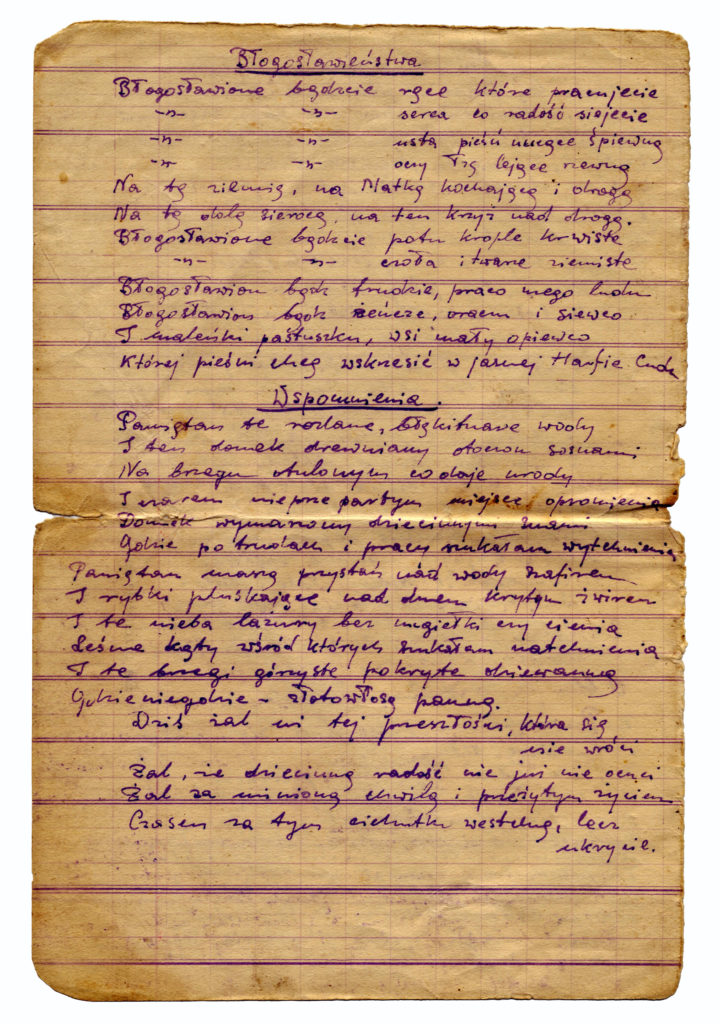 Błogosławieństwa
Błogosławione bądźcie ręce które pracujecie
-"- -"- serca co radość siejecie
-"- -"- usta pieśń nucące śpiewną
-"- -"- oczy łzę lejące rzewną
Na tę ziemię, na Matkę kochającą i drogą
Na tę dolę sierocą, na ten krzyż nad drogą.
Błogosławione bądźcie potu krople krwiste
-"- -"- czoła i twarze ziemiste
Błogosławion bądź trudzie, praco mego ludu
Błogosławion bądź żeńcze, oraczu i siewco
I maleńki pastuszku, wsi mały opiewco
Której pieśni chcę wskrzesić w jasnej Harfie Cudu
Wspomnienia.
Pamiętam te rozlane, błękitnawe wody
I ten domek drewniany otoczon sosnami
Na brzegu otulonym co daje urody
I czarem nieprzepartym miejsce opromienia
Domek wymarzony dziecinnymi snami
Gdzie po trudach i pracy szukałam wytchnienia
Pamiętam naszą przystań nad wody szafirem
I rybki pluskające nad dnem krytym żwirem
I te nieba lazury bez mgiełki czy cienia
Leśne kąty wśród których szukałam natchnienia
I te brzegi górzyste pokryte dziewanną
Gdzieniegdzie - złotowłosą panną.
Dziś żal mi tej przeszłości, która się
nie wróci
Żal, że dziecinną radość nic już nie ocuci
Żal za minioną chwilą i przeżytym życiem
Czasem za tym cichutko westchnę, lecz
ukrycie.